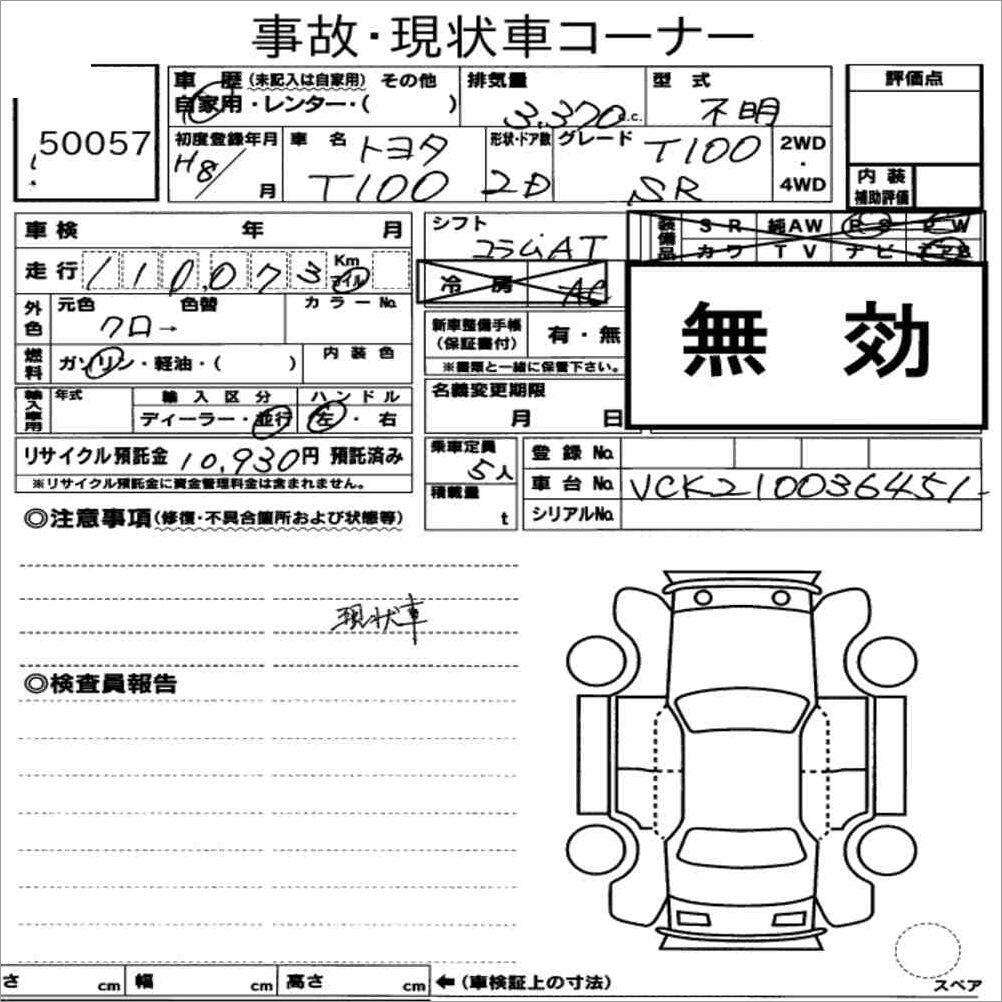 事故・現状車コーナー
50057
車歴 (未記入は自家用) その他
自家用・レンター・( )
排気量
3,370 c.c.
型式
不明
評価点
初度登録年月
H8/ 月
車名
トヨタ
T100
形状・ドア数
2D
グレード
T100
SR
2WD
・
4WD
内装
補助評価
車検 年 月
シフト
コラムAT
装備品
SR 純AW PS PW
カワ TV ナビ エアB
走行 110,073 Km マイル
冷房 AC
無効
外色
元色 色替
クロ→
カラーNo.
新車整備手帳
(保証書付)
有・無
※書類と一緒に保管下さい。
燃料
ガソリン・軽油・( )
内装色
名義変更期限
月 日
輸入車用
年式
輸入区分
ディーラー・並行
ハンドル
左・右
リサイクル預託金 10,930円 預託済み
※リサイクル預託金に資金管理料金は含まれません。
乗車定員
5人
積載量
t
登録No.
車台No. VCK210036451-
シリアルNo.
◎注意事項(修復・不具合箇所および状態等)
現状車
◎検査員報告
さ cm 幅 cm 高さ cm ←(車検証上の寸法)
スペア